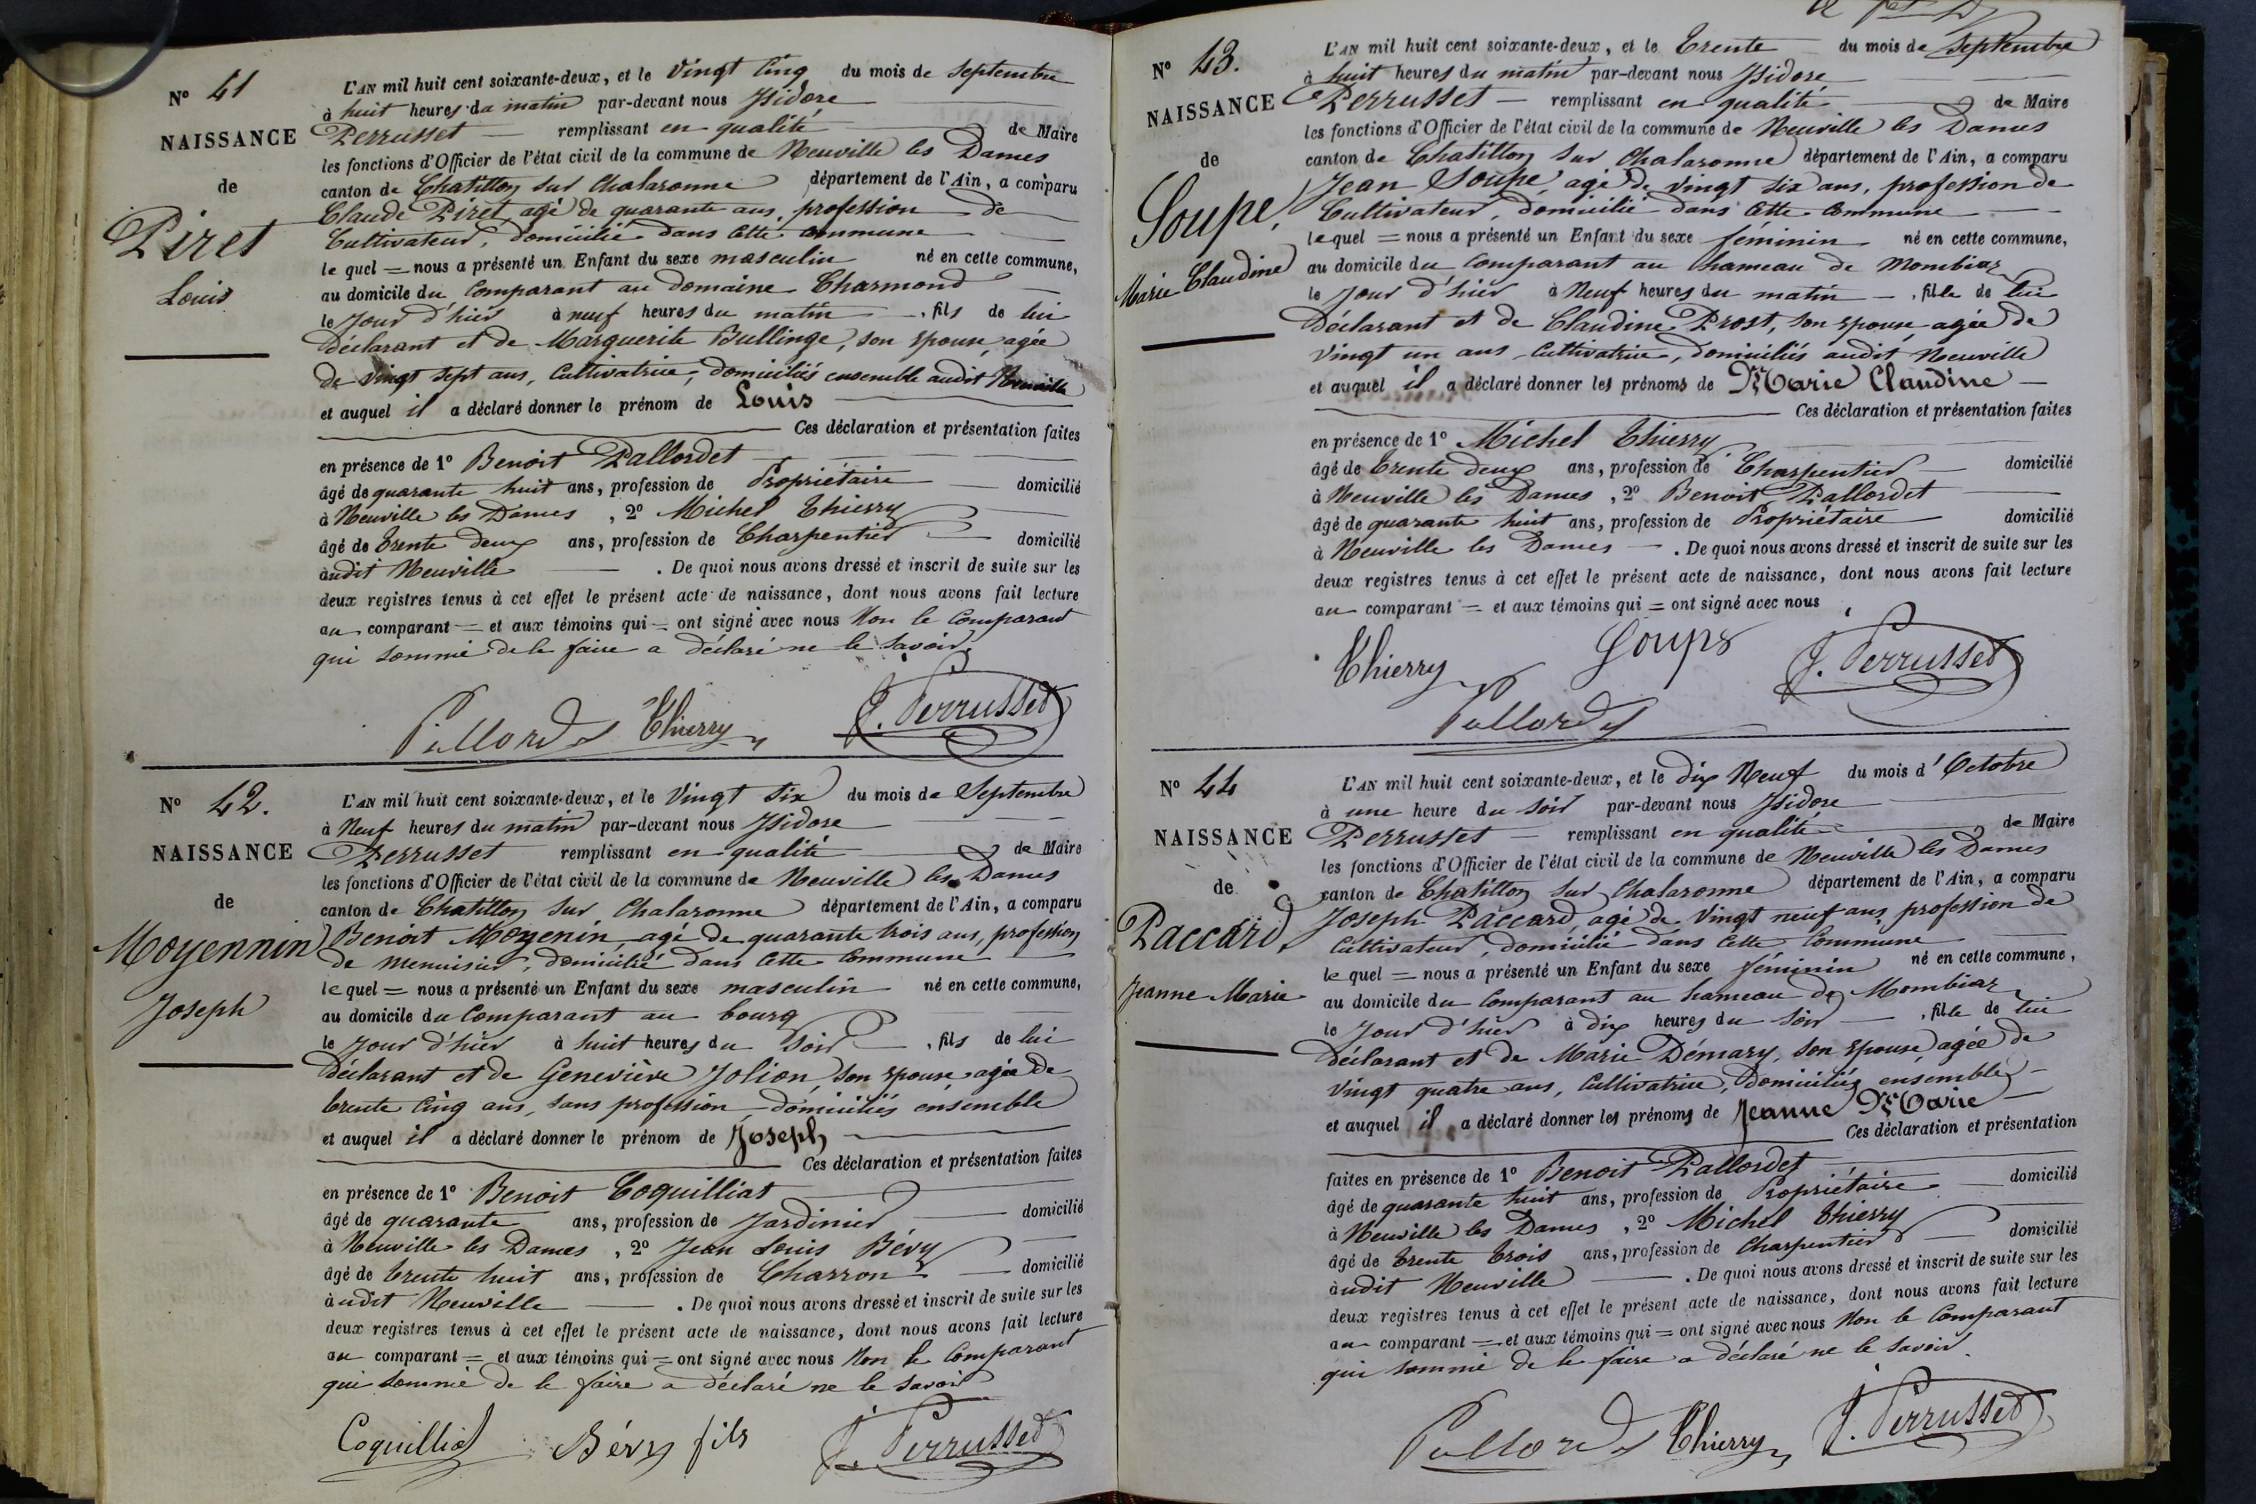 N° 41
NAISSANCE
de
Piret
Louis
L'AN mil huit cent soixante-deux, et le Vingt Cinq du mois de Septembre
à huit heures du matin par-devant nous Isidore
Perrusset remplissant en qualité de Maire
les fonctions d'Officier de l'état civil de la commune de Neuville les Dames
canton de Chatillon sur Chalaronne département de l'Ain, a comparu
Claude Piret, agé de quarante ans, profession de
Cultivateur, domicilié dans Cette Commune
le quel = nous a présenté un Enfant du sexe masculin né en cette commune,
au domicile du Comparant au domaine Charmond
le Jour d'hier à neuf heures du matin , fils de lui
Déclarant et de Marguerite Bullinge, son épouse, agée
de vingt sept ans, Cultivatrice, domiciliés ensemble audit Neuville
et auquel il a déclaré donner le prénom de Louis
Ces déclaration et présentation faites
en présence de 1° Benoit Pallordet
âgé de quarante huit ans, profession de Propriétaire domicilié
à Neuville les Dames , 2° Michel Thierry
âgé de trente deux ans, profession de Charpentier domicilié
audit Neuville . De quoi nous avons dressé et inscrit de suite sur les
deux registres tenus à cet effet le présent acte de naissance, dont nous avons fait lecture
au comparant = et aux témoins qui = ont signé avec nous Non le Comparant
qui sommé de le faire a déclaré ne le savoir.
Pallordet Thierry J. Perrusset
N° 42.
NAISSANCE
de
Moyennin
Joseph
L'AN mil huit cent soixante-deux, et le Vingt Six du mois de Septembre
à Neuf heures du matin par-devant nous Isidore
Perrusset remplissant en qualité de Maire
les fonctions d'Officier de l'état civil de la commune de Neuville les Dames
canton de Chatillon sur Chalaronne département de l'Ain, a comparu
Benoit Moyenin, agé de quarante trois ans, profession
de menuisier, domicilié dans Cette Commune
le quel = nous a présenté un Enfant du sexe masculin né en cette commune,
au domicile du Comparant au bourg
le Jour d'hier à huit heures du Soir , fils de lui
Déclarant et de Geneviève Jolion, son épouse, agée de
trente Cinq ans, sans profession, domiciliés ensemble
et auquel il a déclaré donner le prénom de Joseph
Ces déclaration et présentation faites
en présence de 1° Benoit Coquilliat
âgé de quarante ans, profession de Jardinier domicilié
à Neuville les Dames , 2° Jean Louis Bévy
âgé de trente huit ans, profession de Charron domicilié
audit Neuville . De quoi nous avons dressé et inscrit de suite sur les
deux registres tenus à cet effet le présent acte de naissance, dont nous avons fait lecture
au comparant = et aux témoins qui = ont signé avec nous Non le Comparant
qui sommé de le faire a déclaré ne le savoir
Coquilliat Bévy fils J. Perrusset
N° 43.
NAISSANCE
de
Soupe,
Marie Claudine
L'AN mil huit cent soixante-deux, et le trente du mois de Septembre
à huit heures du matin par-devant nous Isidore
Perrusset remplissant en qualité de Maire
les fonctions d'Officier de l'état civil de la commune de Neuville les Dames
canton de Chatillon sur Chalaronne département de l'Ain, a comparu
Jean Soupe, agé de vingt six ans, profession de
Cultivateur, domicilié dans Cette Commune
le quel = nous a présenté un Enfant du sexe féminin né en cette commune,
au domicile du Comparant au hameau de Mombiaz
le Jour d'hier à Neuf heures du matin , fille de lui
Déclarant et de Claudine Prost, son épouse, agée de
Vingt un ans, Cultivatrice, domiciliés audit Neuville
et auquel il a déclaré donner les prénoms de Marie Claudine
Ces déclaration et présentation faites
en présence de 1° Michel Thierry
âgé de trente deux ans, profession de Charpentier domicilié
à Neuville les Dames , 2° Benoit Pallordet
âgé de quarante huit ans, profession de Propriétaire domicilié
à Neuville les Dames . De quoi nous avons dressé et inscrit de suite sur les
deux registres tenus à cet effet le présent acte de naissance, dont nous avons fait lecture
au comparant = et aux témoins qui = ont signé avec nous
Thierry Soupe J. Perrusset
Pallordet
N° 44
NAISSANCE
de
Paccard,
Jeanne Marie
L'AN mil huit cent soixante-deux, et le dix Neuf du mois d'Octobre
à une heure du soir par-devant nous Isidore
Perrusset remplissant en qualité de Maire
les fonctions d'Officier de l'état civil de la commune de Neuville les Dames
canton de Chatillon sur Chalaronne département de l'Ain, a comparu
Joseph Paccard, agé de vingt neuf ans, profession de
Cultivateur, domicilié dans Cette Commune
le quel = nous a présenté un Enfant du sexe féminin né en cette commune,
au domicile du Comparant au hameau de Mombiaz
le Jour d'hier à dix heures du soir , fille de lui
Déclarant et de Marie Démary, son épouse, agée de
vingt quatre ans, Cultivatrice, domiciliés ensemble
et auquel il a déclaré donner les prénoms de Jeanne Marie
Ces déclaration et présentation
faites en présence de 1° Benoit Pallordet
âgé de quarante huit ans, profession de Propriétaire domicilié
à Neuville les Dames , 2° Michel Thierry
âgé de trente trois ans, profession de Charpentier domicilié
audit Neuville . De quoi nous avons dressé et inscrit de suite sur les
deux registres tenus à cet effet le présent acte de naissance, dont nous avons fait lecture
au comparant = et aux témoins qui = ont signé avec nous Non le Comparant
qui sommé de le faire a déclaré ne le savoir.
Pallordet Thierry J. Perrusset